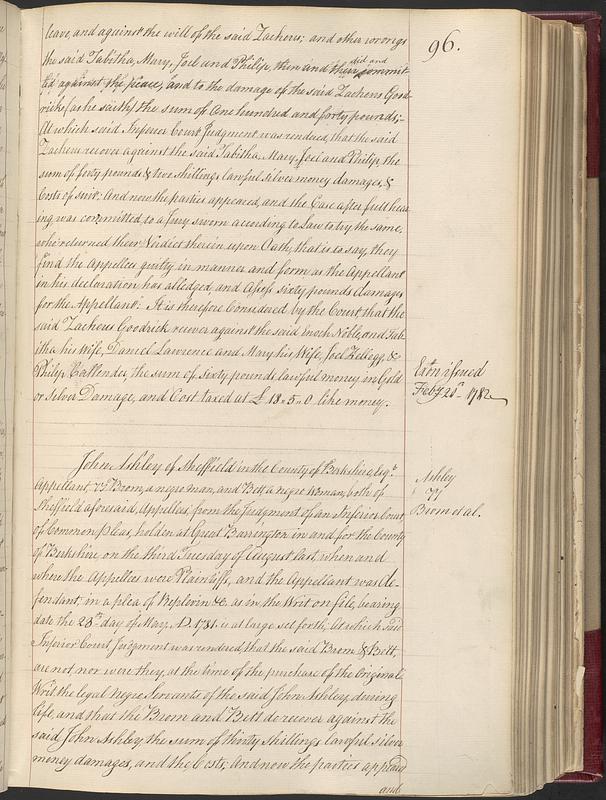 96.
leave, and against the will of the said Zacheus; and other wrongs
the said Tabitha, Mary, Joel and Philip, then and there did and commit-
ted against the peace, and to the damage of the said Zacheus Good-
rich (as he saith) the sum of One hundred and forty pounds;-
At which said Inferior Court Judgment was rendered, that the said
Zacheus recover against the said Tabitha, Mary, Joel and Philip, the
sum of forty pounds & two shillings lawful silver money damages, &
Costs of suit: And now the parties appeared, and the Case after full hear
ing was committed to a Jury sworn according to Law to try the same,
who returned their Verdict therein upon Oath, that is to say, they
find the Appellees guilty in manner and form as the Appellant
in his declaration has alledged, and Assess sixty pounds damages
for the Appellant: It is therefore Considered by the Court that the
said Zacheus Goodrick recover against the said Enoch Noble, and Tab-
itha his Wife, Daniel Lawrence and Mary his Wife, Joel Kellogg &
Philip Callender, the sum of Sixty pounds lawful money in Gold
or Silver Damage, and Cost taxed at £ 13..5..0 like money.
Exton issued
Feby 20th 1782
John Ashley of Sheffield in the County of Berkshire, Esqr.
Appellant Vs. Brom, a negro man, and Bett a negro Woman, both of
Sheffield aforesaid, Appellees, from the Judgment of an Inferior Court
of Common Pleas, holden at Great Barrington in and for the County
of Berkshire on the third Tuesday of August last, when and
where the Appellees were Plaintiffs, and the Appellant was de-
fendant, in a plea of Replevin &c. as in the Writ on file, bearing
date the 28th day of May A.D. 1781. is at large set forth; At which said
Inferior Court Judgment was rendered, that the said Brom & Bett
are not, nor were they, at the time of the purchase of the Original
Writ the legal negro Servants of the said John Ashley, during
Life, and that the Brom and Bett do recover against the
said John Ashley, the sum of thirty shillings lawful silver
money damages, and the Costs; And now the parties appeared
and
Ashley
Vs
Brom et al.